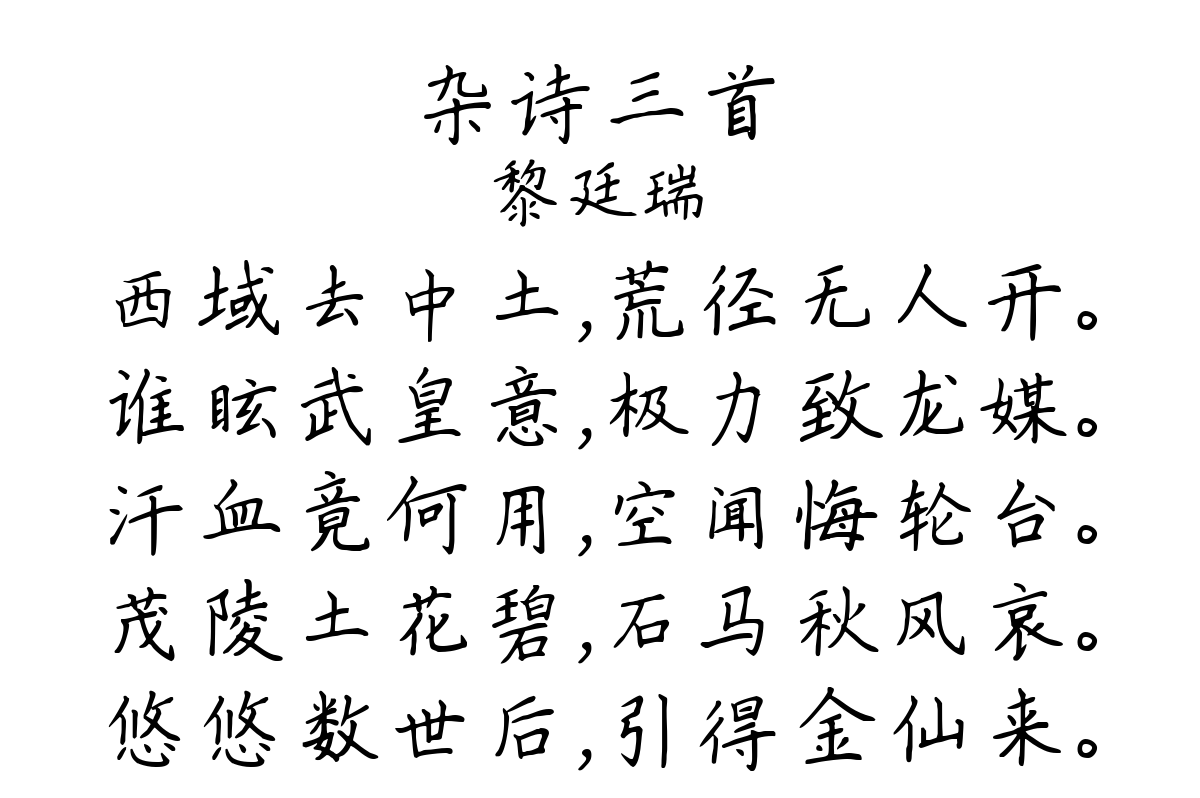 杂诗三首
黎廷瑞
西域去中土,荒径无人开。
谁眩武皇意,极力致龙媒。
汗血竟何用,空闻悔轮台。
茂陵土花碧,石马秋风哀。
悠悠数世后,引得金仙来。